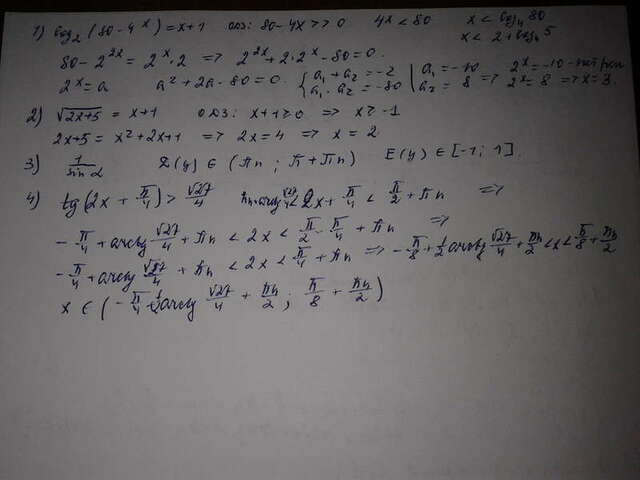 1) log₂(80-4ˣ)=x+1 одз: 80-4x>>0 4ˣ<80 x<log₄80
x<2+log₄5
80-2²ˣ=2ˣ·2 => 2²ˣ+2·2ˣ-80=0.
2ˣ=a a²+2a-80=0. {a₁+a₂=-2 a₁·a₂=-80 | a₁=-10 a₂=8 => 2ˣ=-10 - 2ˣ=8 => x=3.
2) √2x+5 = x+1 одз: x+1≥0 => x≥-1
2x+5=x²+2x+1 => 2x=4 => x=2
3) 1/sin α D(y)∈(πn; π+πn) E(y)∈[-1;1].
4) tg(2x+π/4)>√27/4 <2x+π/4<π/2+πn =>
-π/4+arctg √27/4+πn<2x<π/2-π/4+πn =>
-π/4+arctg √27/4+πn<2x<π/4+πn => -π/8+1/2 arctg √27/4+πn/2<x<π/8+πn/2
x∈(-π/4 arctg √27/4+πn/2; π/8+πn/2)